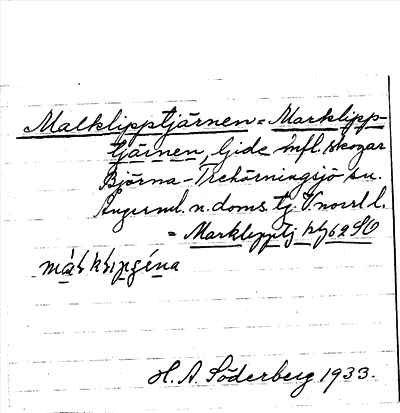 Malklipptjärnen = Marklipp-
tjärnen, Gide infl. skogar
Björna - Trehörningsjö sn.
Ångerml. n. doms. tj. V.norrl. l.
= Marklipptj htj 62 SO
H. A. Söderberg 1933.